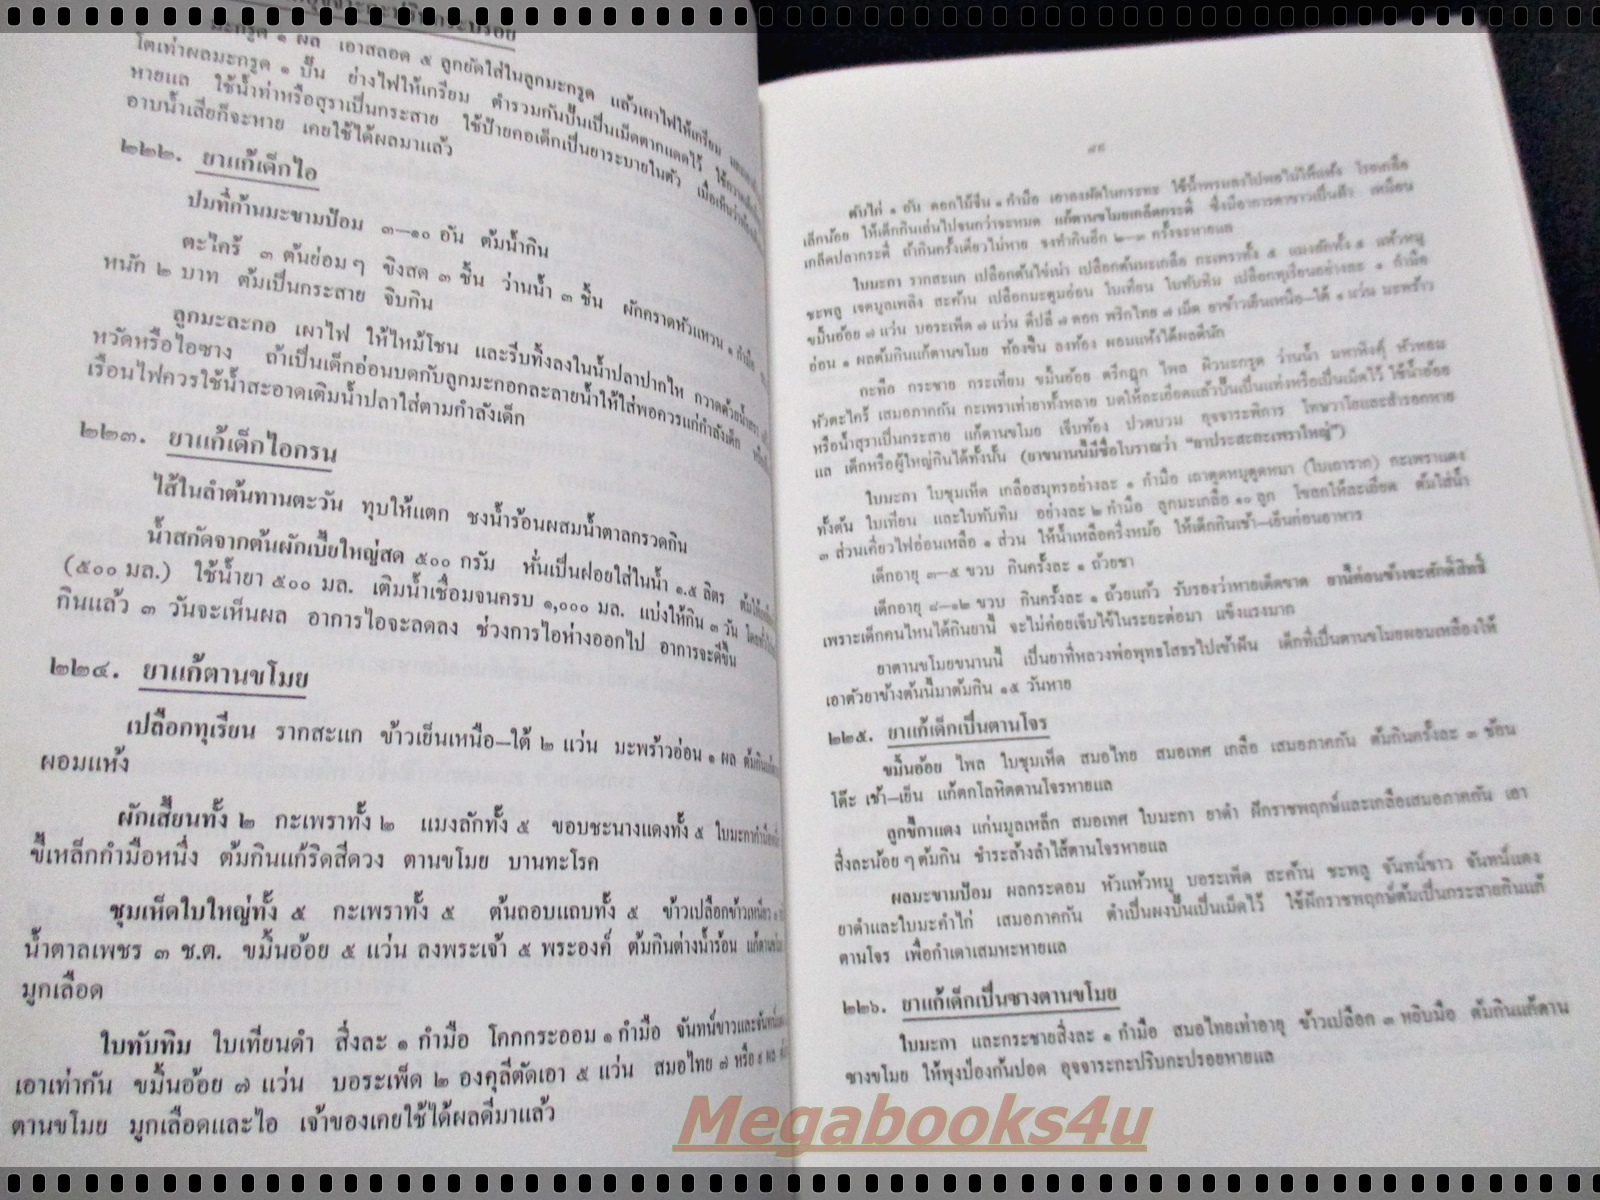 มะกรูด ๑ ผล เอาสลอด ๕ ลูกยัดใส่ในลูกมะกรูด แล้วเผาไฟให้เกรียม
โตเท่าผลมะกรูด ๑ ปั้น ย่างไฟให้เกรียม ตำรวมกันปั้นเป็นเม็ดตากแดดไว้
หายแล ใช้น้ำท่าหรือสุราเป็นกระสาย ใช้ป้ายคอเด็กเป็นยาระบายในตัว เมื่อเห็นว่า
อาบน้ำเสียก็จะหาย เคยใช้ได้ผลมาแล้ว
๒๒๒. ยาแก้เด็กไอ
ปมที่ก้านมะขามป้อม ๓—๑๐ อัน ต้มน้ำกิน
ตะไคร้ ๓ ต้นย่อมๆ ขิงสด ๓ ชิ้น ว่านน้ำ ๓ ชิ้น ผักคราดหัวแหวน ๑ กำมือ
หนัก ๒ บาท ต้มเป็นกระสาย จิบกิน
ลูกมะละกอ เผาไฟ ให้ไหม้โชน และรีบทิ้งลงในน้ำปลาปากไห กวาดด้วยน้ำสุรา
หวัดหรือไอซาง ถ้าเป็นเด็กอ่อนบดกับลูกมะกอกละลายน้ำให้ใส่พอควรแก่กำลังเด็ก
เรือนไฟควรใช้น้ำสะอาดเติมน้ำปลาใส่ตามกำลังเด็ก
๒๒๓. ยาแก้เด็กไอกรน
ไส้ในลำต้นทานตะวัน ทุบให้แตก ชงน้ำร้อนผสมน้ำตาลกรวดกิน
น้ำสกัดจากต้นผักเบี้ยใหญ่สด ๕๐๐ กรัม หั่นเป็นฝอยใส่ในน้ำ ๑.๕ ลิตร
(๕๐๐ มล.) ใช้น้ำยา ๕๐๐ มล. เติมน้ำเชื่อมจนครบ ๑,๐๐๐ มล. แบ่งให้กิน ๓ วัน
กินแล้ว ๓ วันจะเห็นผล อาการไอจะลดลง ช่วงการไอห่างออกไป อาการจะดีขึ้น
๒๒๔. ยาแก้ตานขโมย
เปลือกทุเรียน รากสะแก ข้าวเย็นเหนือ—ใต้ ๒ แว่น มะพร้าวอ่อน ๑ ผล
ผอมแห้ง
ผักเสี้ยนทั้ง ๒ กะเพราทั้ง ๒ แมงลักทั้ง ๕ ขอบชะนางแดงทั้ง ๕
ขี้เหล็กกำมือหนึ่ง ต้มกินแก้ริดสีดวง ตานขโมย บานทะโรค
ชุมเห็ดใบใหญ่ทั้ง ๕ กะเพราทั้ง ๕ ต้นถอบแถบทั้ง ๕
น้ำตาลเพชร ๓ ช.ต. ขมิ้นอ้อย ๕ แว่น ลงพระเจ้า ๕ พระองค์ ต้มกินต่างน้ำร้อน
มูกเลือด
ใบทับทิม ใบเทียนดำ สิ่งละ ๑ กำมือ โคกกระออม ๑ กำมือ
เอาเท่ากัน ขมิ้นอ้อย ๗ แว่น บอระเพ็ด ๒ องคุลีตัดเอา ๕ แว่น สมอไทย ๗ หรือ ๙ ผล
ตานขโมย มูกเลือดและไอ เจ้าของเคยใช้ได้ผลดีมาแล้ว
ตับไก่ ๑ อัน ดอกไม้จีน ๑ กำมือ เอาลงผัดในกระทะ
เล็กน้อย ให้เด็กกินเล่นไปจนกว่าจะหมด แก้ตานขโมยเกล็ดกระดี่ ซึ่งมีอาการตาขาวเป็นสีเหมือน
เกล็ดปลากระดี่ ถ้ากินครั้งเดียวไม่หาย จงทำกินอีก ๒—๓ ครั้งจะหายแล
ใบมะกา รากสะแก เปลือกต้นไข่เน่า เปลือกต้นมะเกลือ กะเพราทั้ง ๕ แมงลักทั้ง ๕ แห้วหมู
ชะพลู เจตมูลเพลิง สะค้าน เปลือกมะตูมอ่อน ใบเทียน ใบทับทิม เปลือกทุเรียนอย่างละ ๑ กำมือ
ขมิ้นอ้อย ๗ แว่น บอระเพ็ด ๗ แว่น ดีปลี ๗ ดอก พริกไทย ๗ เม็ด ยาข้าวเย็นเหนือ—ใต้ ๑ แว่น มะพร้าว
อ่อน ๑ ผลต้มกินแก้ตานขโมย ท้องขึ้น ลงท้อง ผอมแห้งได้ผลดีนัก
กะทือ กระชาย กระเทียม ขมิ้นอ้อย ดรีกฎุก ไพล ผิวมะกรูด ว่านน้ำ มหาหิงคุ์ หัวหอม
หัวตะไคร้ เสมอภาคกัน กะเพราเท่ายาทั้งหลาย บดให้ละเอียดแล้วปั้นเป็นแท่งหรือเป็นเม็ดไว้ ใช้น้ำอ้อย
หรือน้ำสุราเป็นกระสาย แก้ตานขโมย เจ็บท้อง ปวดบวม อุจจาระพิการ โทษวาโยและสำรอกหาย
แล เด็กหรือผู้ใหญ่กินได้ทั้งนั้น (ยาขนานนี้มีชื่อโบราณว่า “ยาประสะกะเพราใหญ่”)
ใบมะกา ใบชุมเห็ด เกลือสมุทรอย่างละ ๑ กำมือ เถาตูดหมูตูดหมา (ใบเถาราก) กะเพราแดง
ทั้งต้น ใบเทียน และใบทับทิม อย่างละ ๒ กำมือ ลูกมะเกลือ ๑๐ ลูก โขลกให้ละเอียด ต้มใส่น้ำ
๓ ส่วนเคี่ยวไฟอ่อนเหลือ ๑ ส่วน ให้น้ำเหลือครึ่งหม้อ ให้เด็กกินเช้า—เย็นก่อนอาหาร
เด็กอายุ ๓—๕ ขวบ กินครั้งละ ๑ ถ้วยชา
เด็กอายุ ๘—๑๒ ขวบ กินครั้งละ ๑ ถ้วยแก้ว รับรองว่าหายเด็ดขาด ยานี้ค่อนข้างจะศักดิ์สิทธิ์
เพราะเด็กคนไหนได้กินยานี้ จะไม่ค่อยเจ็บไข้ในระยะต่อมา แข็งแรงมาก
ยาตานขโมยขนานนี้ เป็นยาที่หลวงพ่อพุทธโสธรไปเข้าฝัน เด็กที่เป็นตานขโมยผอมเหลืองให้
เอาตัวยาข้างต้นนี้มาต้มกิน ๑๕ วันหาย
๒๒๕. ยาแก้เด็กเป็นตานโจร
ขมิ้นอ้อย ไพล ใบชุมเห็ด สมอไทย สมอเทศ เกลือ เสมอภาคกัน ต้มกินครั้งละ ๓ ช้อน
โต๊ะ เช้า—เย็น แก้ตกโลหิตตานโจรหายแล
ลูกขี้กาแดง แก่นมูลเหล็ก สมอเทศ ใบมะกา ยาดำ ฝักราชพฤกษ์และเกลือเสมอภาคกัน เอา
สิ่งละน้อย ๆ ต้มกิน ชำระล้างลำไส้ตานโจรหายแล
ผลมะขามป้อม ผลกระดอม หัวแห้วหมู บอระเพ็ด สะค้าน ชะพลู จันทน์ขาว จันทน์แดง
ยาดำและใบมะคำไก่ เสมอภาคกัน ตำเป็นผงปั้นเป็นเม็ดไว้ ใช้ฝักราชพฤกษ์ต้มเป็นกระสายกินแก้
ตานโจร เพื่อกำเดาเสมหะหายแล
๒๒๖. ยาแก้เด็กเป็นซางตานขโมย
ใบมะกา และกระชายสิ่งละ ๑ กำมือ สมอไทยเท่าอายุ ข้าวเปลือก ๓ หยิบมือ ต้มกินแก้ตาน
ซางขโมย ให้พุงป่องก้นปอด อุจจาระกะปริบกะปรอยหายแล
Megabooks4u